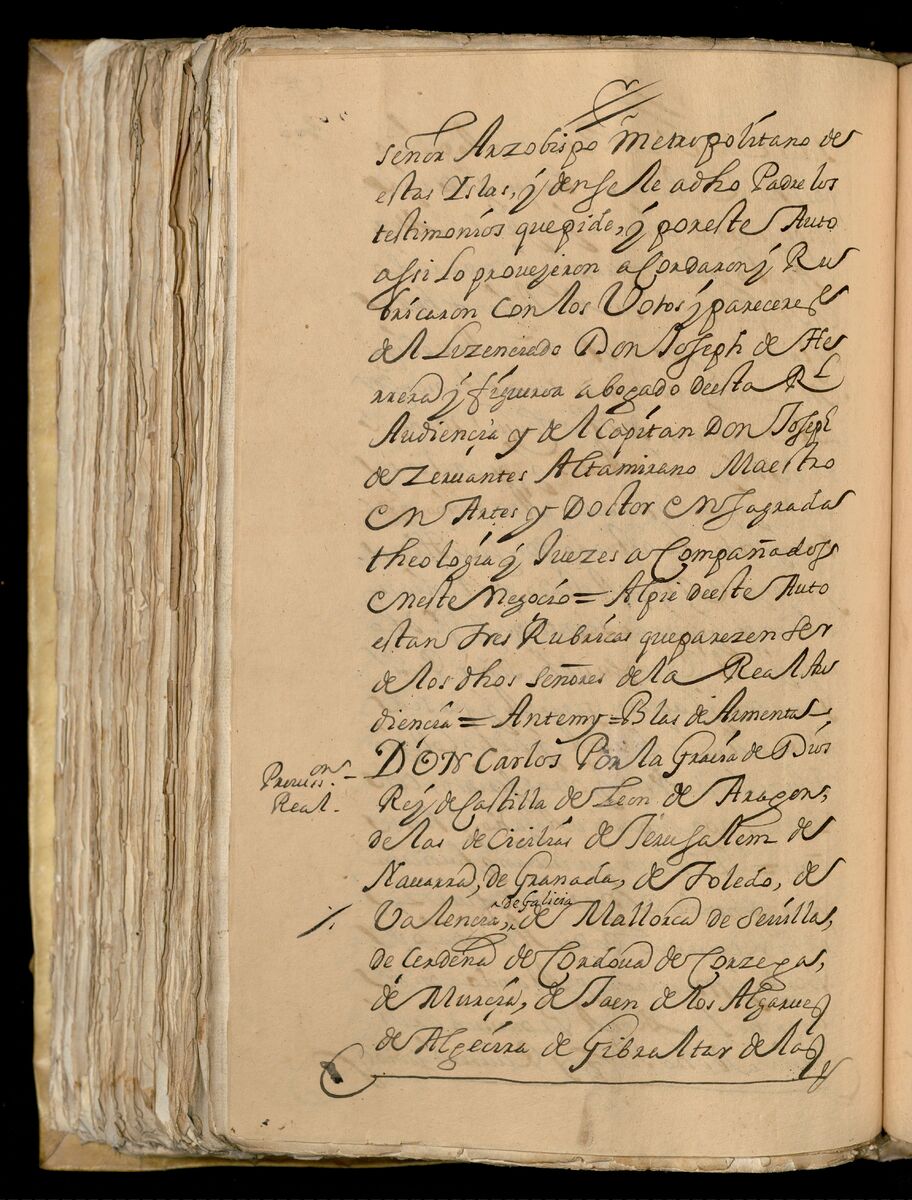 señor Arzobispo Metropolitano de
estas Yslas, y densele adho Padre los
testimonios que pide, y por este Auto
assi lo proveyeron acordaron y Ru
bricaron con los Votos y pareceres
del Lizenciado Don Joseph de He
rrera y figueroa abogado de esta Rl
Audiencia y del Capitan Don Joseph
de Zervantes Altamirano Maestro
en Artes y Doctor en sagrada
theologia y Juezes acompañados
en este Negocio = Al pie de este Auto
estan tres Rubricas que parezen ser
de los dhos señores de la Real Au
diencia = Antemy = Blas de Armenta
Provisson. Real.
DON Carlos Por la Gracia de Dios
Rey de Castilla de Leon de Aragon,
de las de Cicilias de Jerusalem de
Navarra, de Granada, de Toledo, de
Valencia, de Galicia, de Mallorca de Sevilla,
de Cerdeña de Cordova de Corzega,
de Murcia, de Jaen de los Algarues
de Algecira de Gibraltar de las